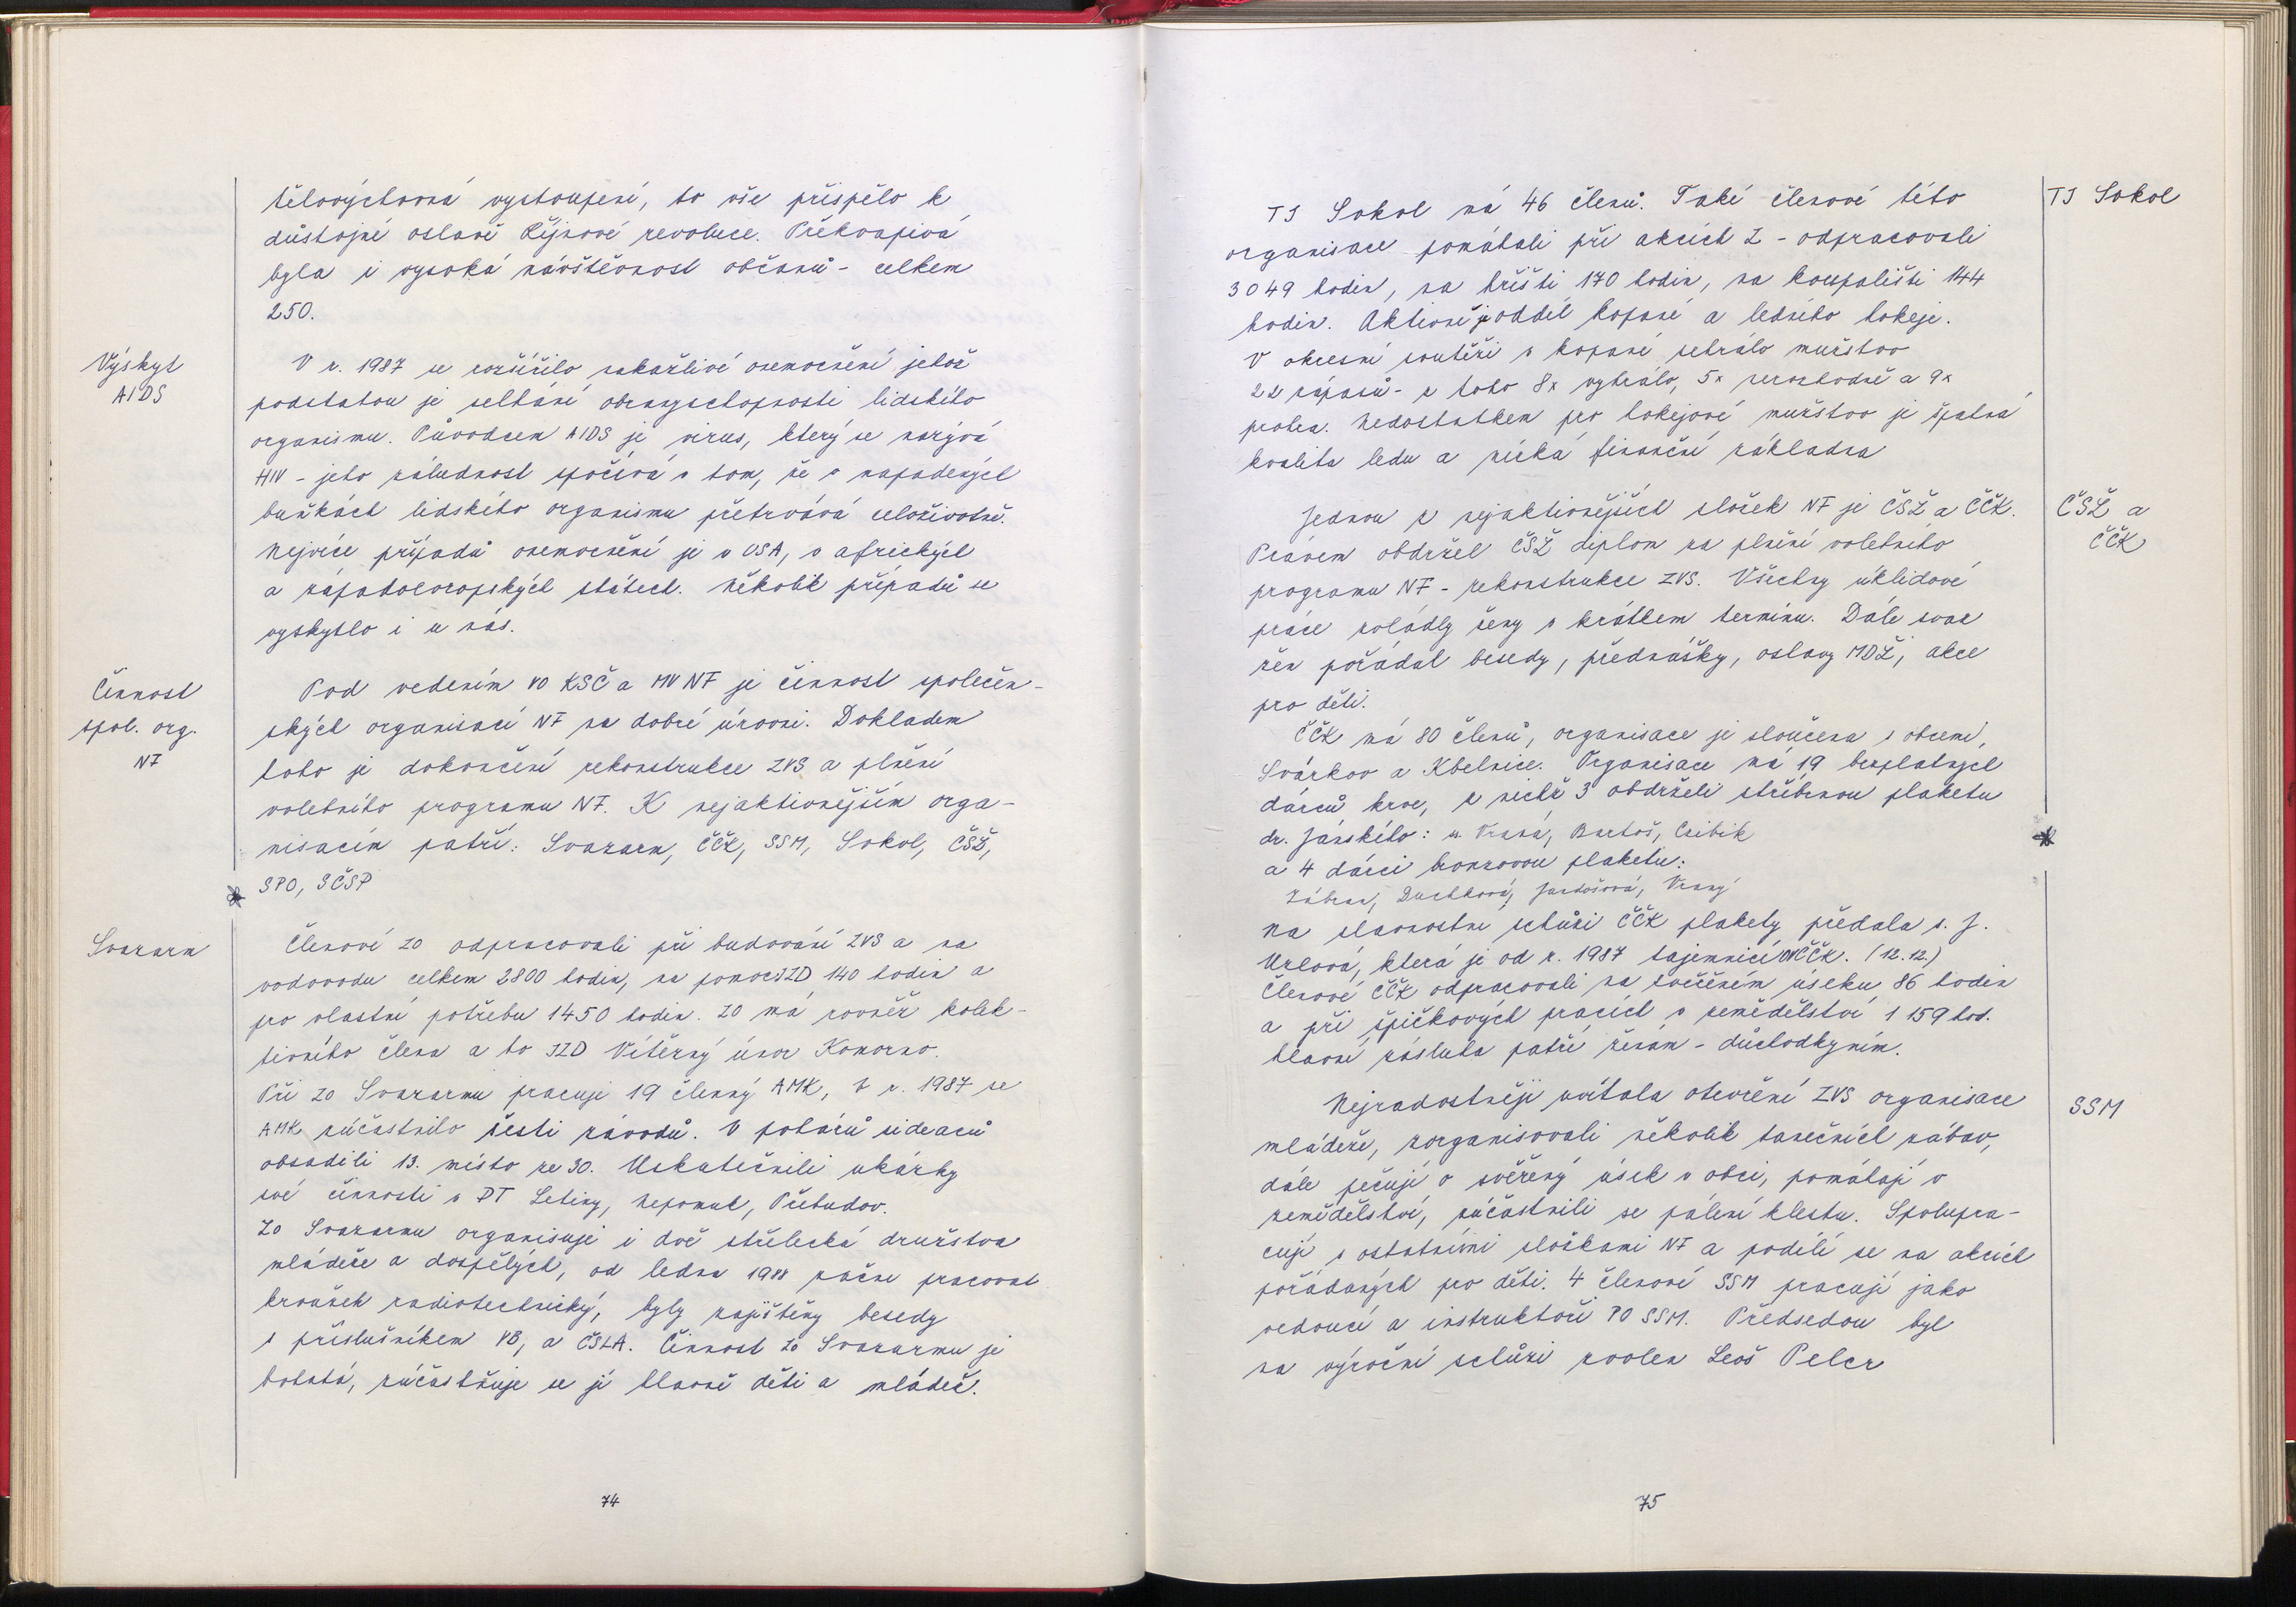 tělovýchovná vystoupení, to vše přispělo k
důstojné oslavě Říjnové revoluce. Překvapivá
byla i vysoká návštěvnost občanů - celkem
250.
Výskyt
AIDS
V r. 1987 se rozšířilo nakažlivé onemocnění jehož
podstatou je selhání obranyschopnosti lidského
organismu. Původcem AIDS je virus, který se nazývá
HIV - jeho záludnost spočívá v tom, že v napadených
buňkách lidského organismu přetrvává celoživotně.
Nejvíce případů onemocnění je v USA, v afrických
a západoevropských státech. Několik případů se
vyskytlo i u nás.
Činnost
spol. org.
NF
Pod vedením VO KSČ a MV NF je činnost společen-
ských organisací NF na dobré úrovni. Dokladem
toho je dokončení rekonstrukce ZVS a plnění
volebního programu NF. K nejaktivnějším orga-
nisacím patří: Svazarm, ČČK, SSM, Sokol, ČSŽ,
SPO, SČSP
Svazarm
Členové ZO odpracovali při budování ZVS a na
vodovodu celkem 2800 hodin, na pomoc JZD 140 hodin a
pro vlastní potřebu 1450 hodin. ZO má rovněž kolek-
tivního člena a to JZD Vítězný únor Komorno.
Při ZO Svazarmu pracuje 19 členný AMK, V r. 1987 se
AMK zúčastnilo šesti závodů. V poháru sidecarů
obsadili 13. místo ze 30. Uskutečnili ukázky
své činnosti v PT Letiny, Nepomuk, Přebudov.
ZO Svazarmu organisuje i dvě střelecká družstva
mládeže a dospělých, od ledna 1988 začne pracovat
kroužek radiotechnický, byly zajištěny besedy
s příslušníkem VB, a ČSLA. Činnost ZO Svazarmu je
bohatá, zúčastňuje se jí hlavně děti a mládež.
74
TJ Sokol
TJ Sokol má 46 členů. Také členové této
organisace pomáhali při akcích Z - odpracovali
3049 hodin, na hřišti 170 hodin, na koupališti 144
hodin. Aktivně je oddíl kopané a ledního hokeje.
V okresní soutěži v kopané sehrálo mužstvo
22 zápasů - z toho 8x vyhrálo, 5x nerozhodně a 9x
prohra. Nedostatkem pro hokejové mužstvo je špatná
kvalita ledu a nízká finanční základna
ČSŽ a
ČČK
Jednou z nejaktivnějších složek NF je ČSŽ a ČČK.
Právem obdržel ČSŽ diplom za plnění volebního
programu NF - rekonstrukce ZVS. Všechny úklidové
práce zvládly ženy v krátkem termínu. Dále svaz
žen pořádal besedy, přednášky, oslavy MDŽ, akce
pro děti.
ČČK má 80 členů, organisace je sloučena s obcemi,
Svárkov a Kbelnice. Organisace má 19 bezplatných
dárců krve, z nichž 3 obdrželi stříbrnou plaketu
dr. Jánského: s. Vraná, Bartoš, Csibik
a 4 dárci bronzovou plaketu:
Duchková, Jardošová, Vraný
Na slavnostní schůzi ČČK plakety předala s. J.
Urlová, která je od r. 1987 tajemnicí OVČČK. (12.12.)
Členové ČČK odpracovali na svěřeném úseku 86 hodin
a při špičkových pracích v zemědělství 1 159 hod.
hlavní zásluha patří ženám - důchodkyním.
SSM
Nejradostněji uvítala otevření ZVS organisace
mládeže, zorganisovali několik tanečních zábav,
dále pečují o svěřený úsek v obci, pomáhají v
zemědělství, zúčastnili se pálení klestu. Spolupra-
cují s ostatními složkami NF a podílí se na akcích
pořádaných pro děti. 4 členové SSM pracují jako
vedoucí a instruktoři PO SSM. Předsedou byl
na výroční schůzi zvolen Leoš Pelcr
75